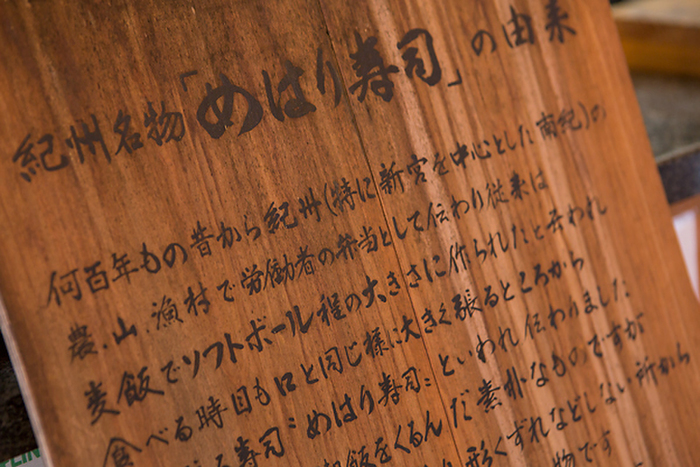 紀州名物「めはり寿司」の由来
何百年もの昔から紀州(特に新宮を中心とした南紀)の
農.山.漁村で労働者の弁当として伝わり従来は
麦飯でソフトボール程の大きさに作られたと云われ
食べる時目も口と同じ様に大きく張るところから
る寿司"めはり寿司"といわれ伝わりました
飯をくるんだ素朴なものですが
形くずれなどしない所から
物です